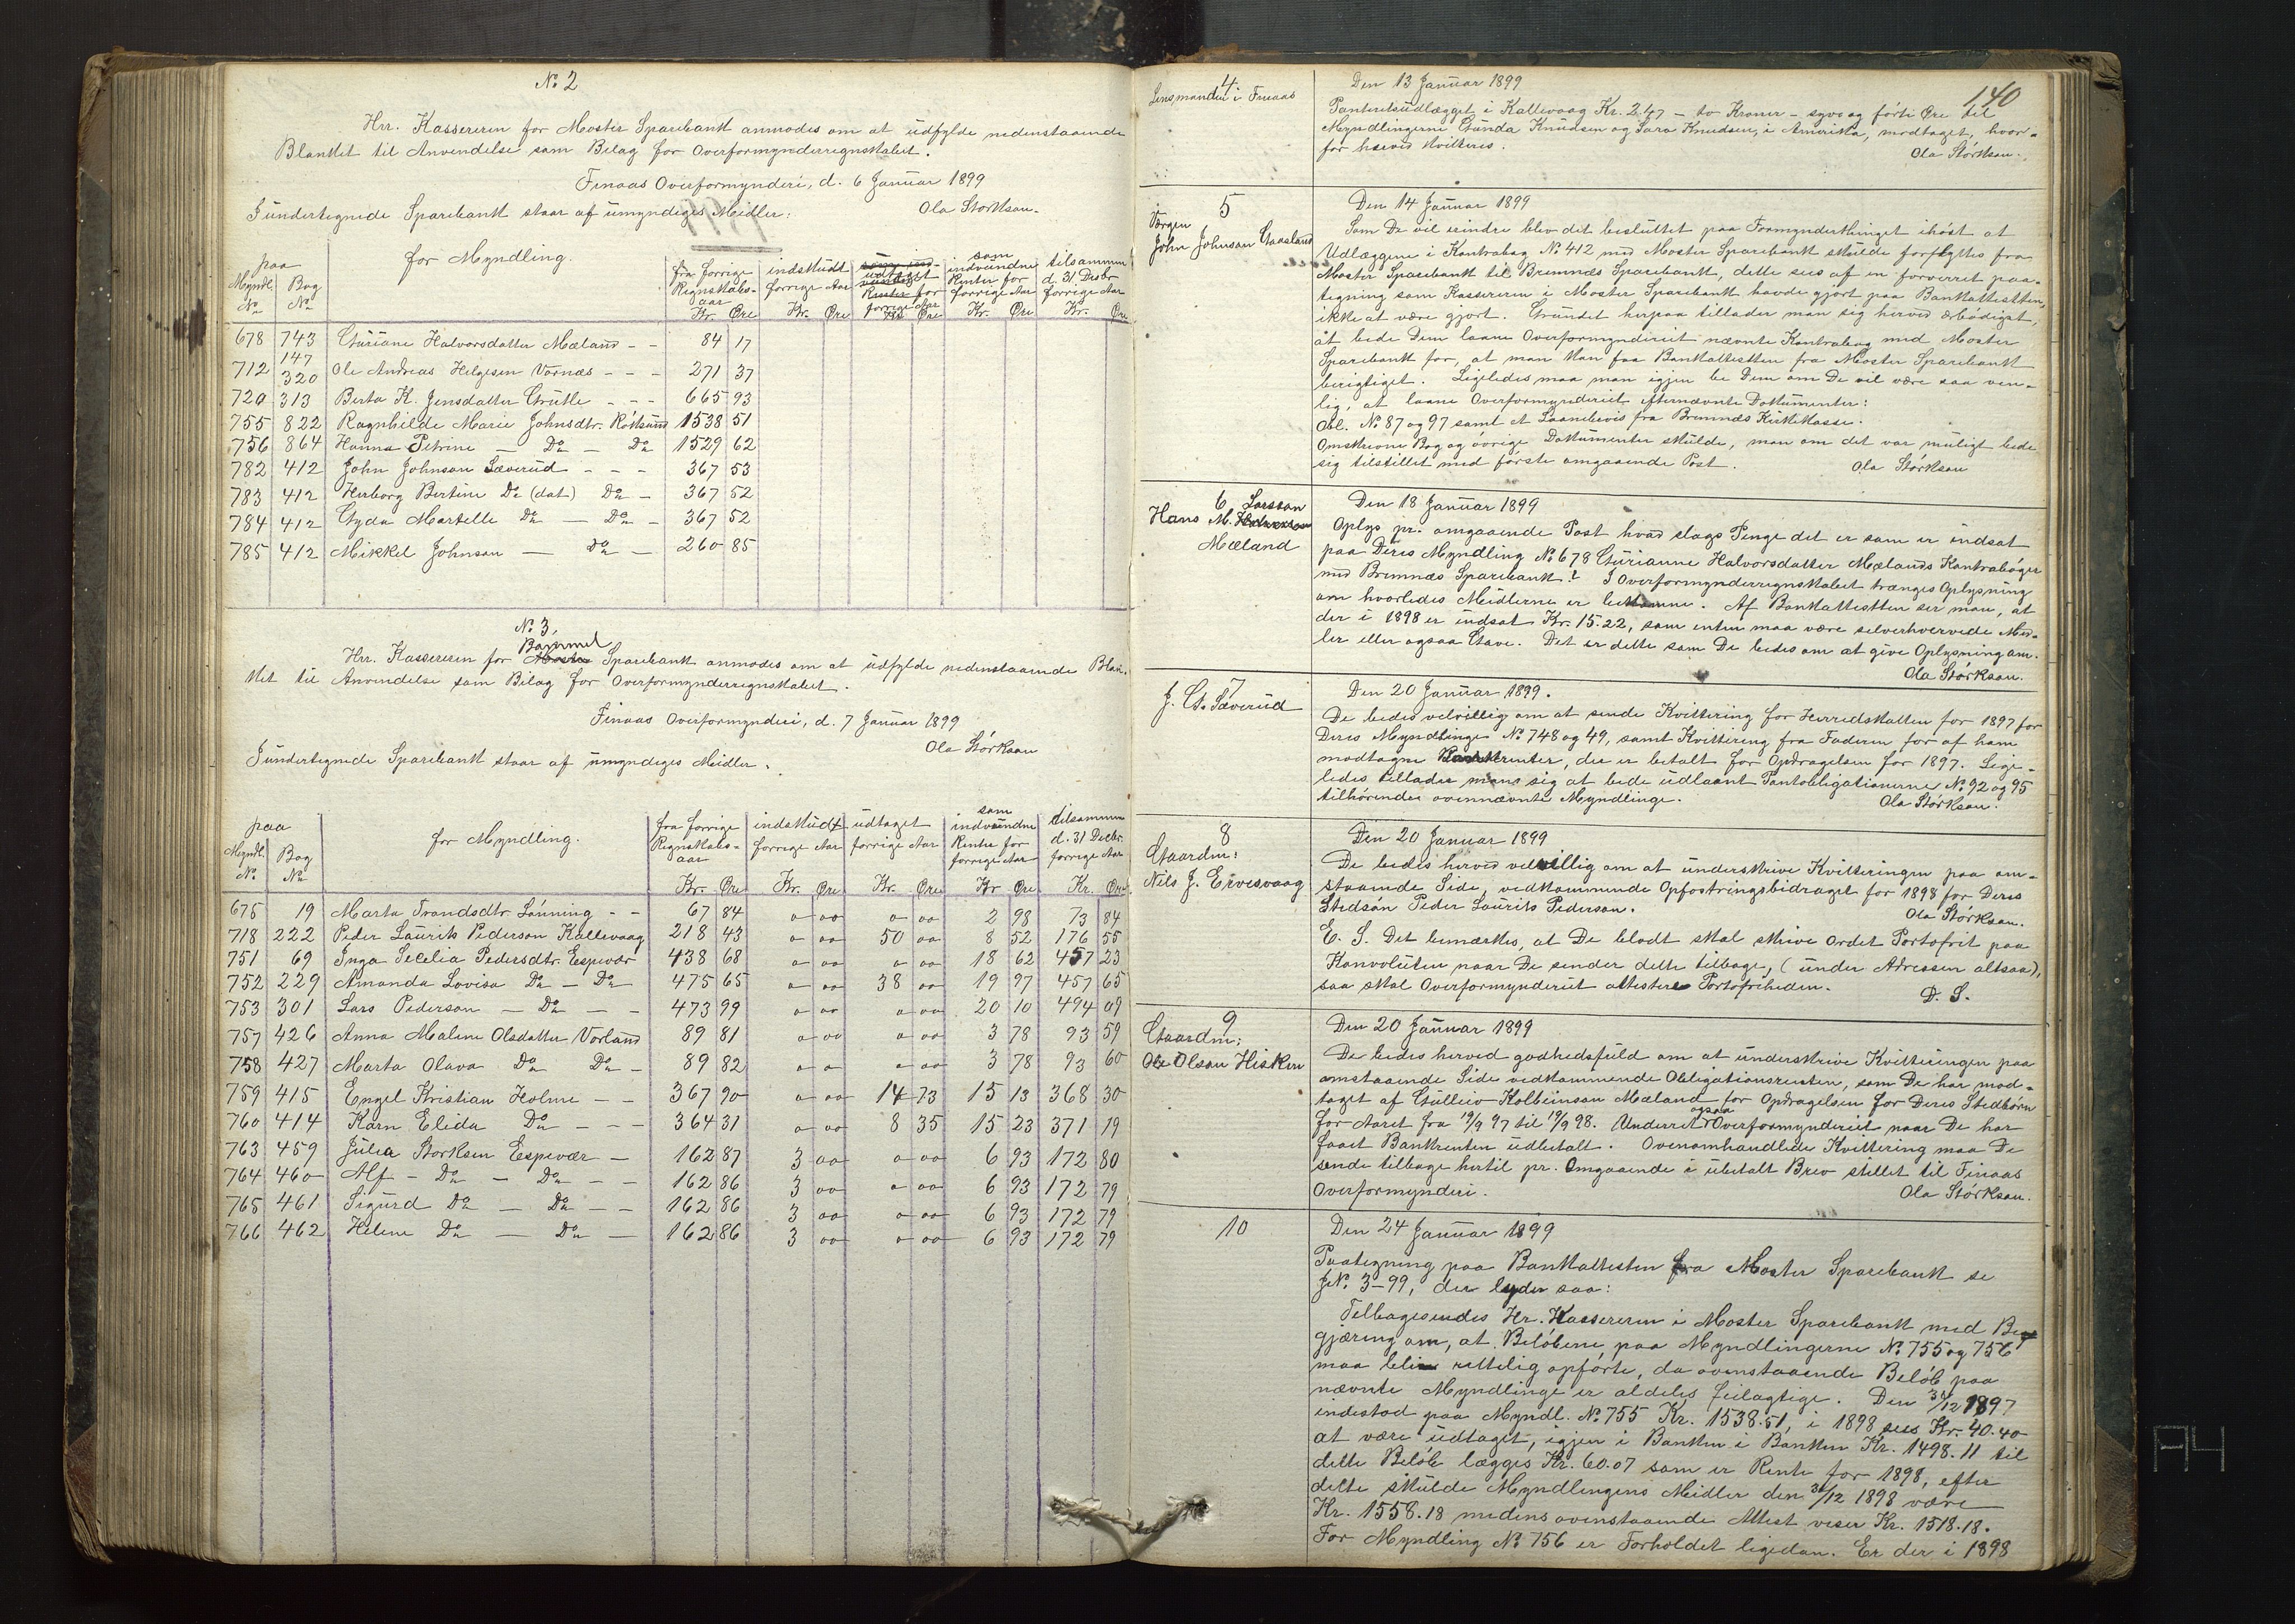 No 2
Hrr. Kassereren for Moster Sparebank anmodes om at udfylde nedenstaaende
Blanket til Anvendelse som Bilag for Overformynderregnskabet.
Finaas Overformynderi, d. 6 Januar 1899
Ola Størksen.
I undertegnede Sparebank staar af umyndiges Meidler:
paa Myndl. No | Bog No | for Myndling. | fra forrige Regnskabs-aar Kr. Øre | indskudt forrige Aar Kr. Øre | udtaget forrige Aar Kr. Øre | som indvundne Renter for forrige Aar Kr. Øre | tilsammen d. 31 Decbr. forrige Aar Kr. Øre
678 743 Guriane Halvorsdatter Mæland - - 84 17
147
712 320 Ole Andreas Helgesen Vornæs - - - 271 37
720 313 Berta K. Jensdatter Grutle - - - 665 93
755 822 Ragnhilde Marie Johnsdtr. Røksund 1538 51
756 864 Hanna Petrine - Do - Do 1529 62
782 412 John Johnson Sæverud - - - 367 53
783 412 Herborg Bertine Do (dat) Do - 367 52
784 412 Gyda Martelle Do - Do - 367 52
785 412 Mikkel Johnson - Do - 260 85
No 3,
Bømmel
Hrr. Kassereren for Moster Sparebank anmodes om at udfylde nedenstaaende Blan-
ket til Anvendelse som Bilag for Overformynderregnskabet.
Finaas Overformynderi, d. 7 Januar 1899
Ola Størksen
I undertegnede Sparebank staar af umyndiges Meidler.
paa Myndl. No. | Bog No | for Myndling. | fra forrige Regnskabs-aar Kr. Øre | indskudt forrige Aar Kr. Øre | udtaget forrige Aar Kr. Øre | som indvundne Renter for forrige Aar Kr Øre | tilsammen d. 31 Decbr. forrige Aar Kr. Øre
675 19 Marta Trondsdtr. Lønning - - 67 84 o oo o oo 2 98 73 84
718 222 Peder Laurits Pederson Kallevaag 218 43 o oo 50 oo 8 52 176 55
751 69 Inga Secelia Pedersdtr. Espevær 438 68 o oo o oo 18 62 457 23
752 229 Amanda Lovisa Do - Do 475 65 o oo 38 oo 19 97 457 65
753 301 Lars Pederson - Do - - 473 99 o oo o oo 20 10 494 09
757 426 Anna Malene Olsdatter Vorland 89 81 o oo o oo 3 78 93 59
758 427 Marta Olava Do Do - 89 82 o o - oo 3 78 93 60
759 415 Engel Kristian Holme - - 367 90 o oo 14 73 15 13 368 30
760 414 Karn Elida Do - - - 364 31 o oo 8 35 15 23 371 19
763 459 Julia Storksen Espevær - 162 87 3 oo o oo 6 93 172 80
764 460 Alf - Do - Do - - 162 86 3 oo o oo 6 93 172 79
765 461 Sigurd Do - Do - - 162 86 3 oo o oo 6 93 172 79
766 462 Helene Do - Do - 162 86 3 oo o oo 6 93 172 79
140
4
Lensmanden i Finaas
Den 13 Januar 1899
Panteretsudlægget i Kallevaag Kr. 2.47 - to Kroner - syv og førti Øre til
Myndlingerne Gunda Knudsen og Sara Knudsen, i Amerika, modtaget, hvor-
for herved kvitteres.
Ola Størksen.
5
Værgen
John Johnson Gaasland
Den 14 Januar 1899
Som De vil erindre blev det besluttet paa Formynderthinget ihøst at
Udlæggene i Kontrabog No 412 med Moster Sparebank skulde forflyttes fra
Moster Sparebank til Bremnæs Sparebank, dette sees af en forverret paa-
tegning som Kassereren i Moster Sparebank havde gjort paa Bankattesten,
ikke at være gjort. Grundet herpaa tillader man sig herved ærbødigst,
at bede Dem laane Overformynderiet nævnte Kontrabog med Moster
Sparebank for, at man kan faa Bankattesten fra Moster Sparebank
berigtiget. Ligeledes maa man igjen be Dem om De vil være saa ven-
lig, at laane Overformynderiet efternævnte Dokumenter:
Obl. No 87 og 97 samt et Laanebevis fra Bremnæs Kirkekasse.
Omskrevne Bog og øvrige Dokumenter skulde, man om det var muligt bede
sig tilstillet med første omgaaende Post.
Ola Størksen
6
Hans M. Larsson
Mæland
Den 18 Januar 1899
Oplys pr. omgaaende Post hvad slags Penge det er som er indsat
paa Deres Myndling No 678 Gurianne Halvorsdatter Mælands Kontrabøger
med Bremnæs Sparebank? I Overformynderregnskabet trænges Oplysning
om hvorledes Meidlerne er bekomne. Af Bankattesten ser man, at
der i 1898 er indsat Kr. 15.22, som enten maa være selverhvervede Meid-
ler eller ogsaa Gave. Det er dette som De bedes om at give Oplysning om.
Ola Størksen.
7
J. G. Sæverud
Den 20 Januar 1899.
De bedes velvillig om at sende Kvittering for Herredskatten for 1897 for
Deres Myndlinge No 748 og 49, samt Kvittering fra Faderen for af ham
modtagne Bankrenter, der er betalt for Opdragelsen for 1897. Lige-
ledes tillader mans sig at bede udlaant Pantobligationerne No 92 og 95
tilhørende ovennævnte Myndlinge.
Ola Størksen.
8
Gaardm:
Nils J. Ervesvaag
Den 20 Januar 1899
De bedes herved velvillig om at underskrive Kvitteringen paa om-
staaende Side, vedkommende Opfostringsbidraget for 1898 for Deres
Stedsøn Peder Laurits Pederson.
Ola Størksen.
E. S. Det bemærkes, at De blodt skal skrive Ordet Portofrit paa
Konvoluten naar De sender dette tilbage, (under Adressen altsaa),
saa skal Overformynderiet attestere Portofriheden.
D. S.
9
Gaardm:
Ole Olson Hisken
Den 20 Januar 1899
De bedes herved godhedsfuld om at underskrive Kvitteringen paa
omstaaende Side vedkommende Obligationsrenten, som De har mod-
taget af Gulleiv Kolbeinson Mæland for Opdragelsen for Deres Stedbørn
for Aaret fra 19/9 97 til 19/9 98. Underret ogsaa Overformynderiet naar De har
faaet Bankrenten udbetalt. Ovenomhandlede Kvittering maa De
sende tilbage hertil pr. Omgaaende i ubetalt Brev stillet til Finaas
Overformynderi.
Ola Størksen.
10
Den 24 Januar 1899
Paategning paa Bankattesten fra Moster Sparebank se
JNo. 3-99, der lyder saa:
Tilbagesendes Hr. Kassereren i Moster Sparebank med Be-
gjæring om, at Beløbene paa Myndlingerne No. 755 og 756
maa blive rettelig opførte, da ovenstaaende Beløb paa
nævnte Myndlinge er aldeles feilagtige. Den 31/12 1897
indestod paa Myndl. No. 755 Kr. 1538.51, i 1898 sees Kr. 40.40
at være udtaget, igjen i Banken i Banken Kr. 1498.11 til
dette Beløb lægges Kr. 60.07 som er Rente for 1898, efter
dette skulde Myndlingens Meidler den 31/12 1898 være
Kr. 1558.18 medens ovenstaaende Attest viser Kr. 1518.18.
For Myndling No 756 er Forholdet ligedan. Er der i 1898